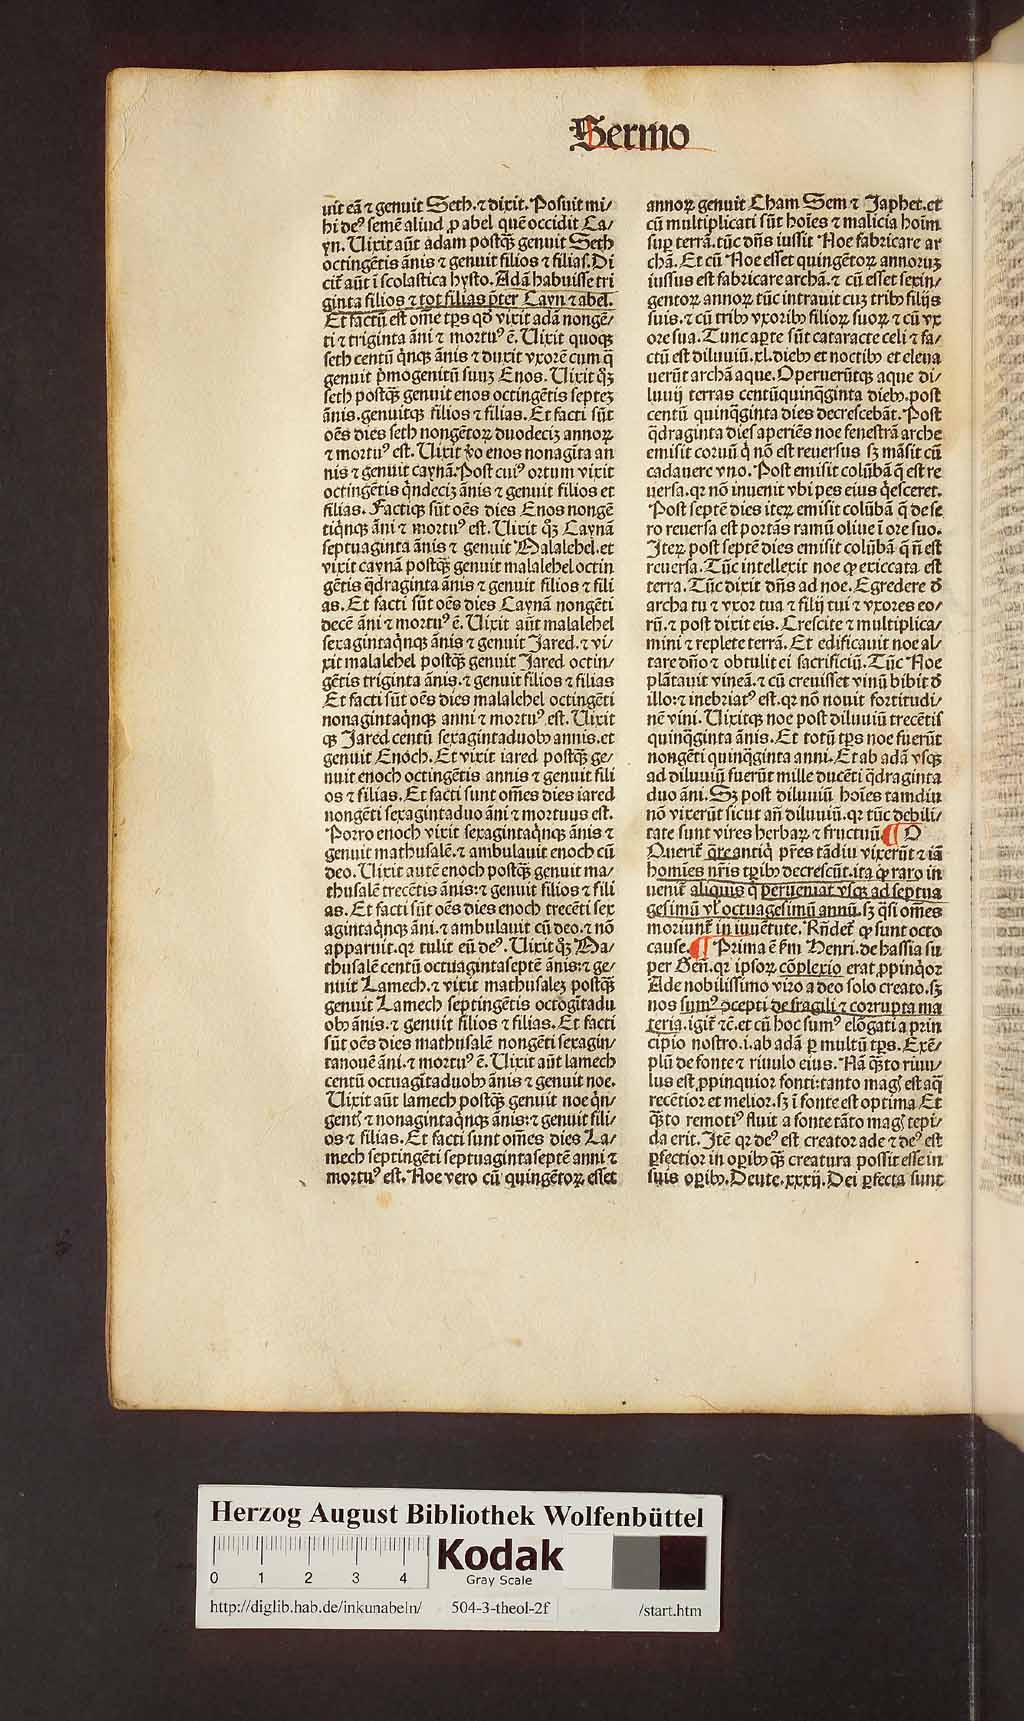 Sermo
uit eā ⁊ genuit Seth.⁊ dixit. Posuit mi/
hi deꝰ semē aliud ꝓ abel quē occidit Ca/
yn. Uixit aūt adam postq̄ꝫ genuit Seth
octingētis ānis ⁊ genuit filios ⁊ filias. Di
cit̄ aūt ī scolastica hysto. Adā habuisse tri
ginta filios ⁊ tot filias p̄ter Cayn ⁊ abel.
Et factū est om̄e tp̄s qd̓ vixit adā nongē/
ti ⁊ triginta āni ⁊ mortuꝰ ē. Uixit quoqꝫ
seth centū q̇nqꝫ ānis ⁊ duxit vxorē cum q̄
genuit p̓mogenitū suuꝫ Enos. Uixit q̓ꝫ
seth postq̄ꝫ genuit enos octingētis septeꝫ
ānis.genuitqꝫ filios ⁊ filias. Et facti sūt
oēs dies seth nongētoꝝ duodeciꝫ annoꝝ
⁊ mortuꝰ est. Uixit v̓o enos nonagita an
nis ⁊ genuit caynā. Post cuiꝰ ortum vixit
octingētis q̇ndeciꝫ ānis ⁊ genuit filios et
filias. Factiqꝫ sūt oēs dies Enos nongē
tiq̇nqꝫ āni ⁊ mortuꝰ est. Uixit q̓ꝫ Caynā
septuaginta ānis ⁊ genuit Malalehel.et
vixit caynā postq̄ꝫ genuit malalehel octin
gētis q̄draginta ānis ⁊ genuit filios ⁊ fili
as. Et facti sūt oēs dies Caynā nongēti
decē āni ⁊ mortuꝰ ē. Uixit aūt malalehel
sexagintaq̇nqꝫ ānis ⁊ genuit Jared.⁊ vi/
xit malalehel postq̄ꝫ genuit Jared octin/
gētis triginta ānis.⁊ genuit filios ⁊ filias
Et facti sūt oēs dies malalehel octingēti
nonagintaq̇nqꝫ anni ⁊ mortuꝰ est. Uixit
qꝫ Jared centū sexagintaduobꝫ annis.et
genuit Enoch. Et vixit iared postq̄ꝫ ge/
nuit enoch octingētis annis ⁊ genuit fili
os ⁊ filias. Et facti sunt om̄es dies iared
nongēti sexagintaduo āni ⁊ mortuus est.
Porro enoch vixit sexagintaq̇nqꝫ ānis ⁊
genuit mathusalē.⁊ ambulauit enoch cū
deo. Uixit autē enoch postq̄ꝫ genuit ma/
thusalē trecētis ānis:⁊ genuit filios ⁊ fili
as. Et facti sūt oēs dies enoch trecēti sex
agintaq̇nqꝫ āni.⁊ ambulauit cū deo.⁊ nō
apparuit.qꝛ tulit eū deꝰ. Uixit q̓ꝫ Ma/
thusalē centū octuagintaseptē ānis:⁊ ge/
nuit Lamech.⁊ vixit mathusaleꝫ postq̄ꝫ
genuit Lamech septingētis octogitadu
obꝫ ānis.⁊ genuit filios ⁊ filias. Et facti
sūt oēs dies mathusalē nongēti sexagin/
tanouē āni.⁊ mortuꝰ ē. Uixit aūt lamech
centū octuagitaduobꝫ ānis ⁊ genuit noe.
Uixit aūt lamech postq̄ꝫ genuit noe q̇n/
gentꝭ ⁊ nonagintaq̇nqꝫ ānis:⁊ genuit fili/
os ⁊ filias. Et facti sunt om̄es dies La/
mech septingēti septuagintaseptē anni ⁊
mortuꝰ est. Noe vero cū quingētoꝝ esset
annoꝝ genuit Cham Sem ⁊ Japhet.et
cū multiplicati sūt hoīes ⁊ malicia hoīm
suꝑ terrā.tūc dn̄s iussit Noe fabricare ar
chā. Et cū Noe esset quingētoꝝ annoruꝫ
iussus est fabricare archā.⁊ cū esset sexin/
gentoꝝ annoꝝ tūc intrauit cuꝫ tribꝫ filijs
suis.⁊ cū tribꝫ vxoribꝫ filioꝝ suoꝝ ⁊ cū vx
ore sua. Tunc aꝑte sūt cataracte celi ⁊ fa/
ctū est diluuiū.xl.diebꝫ et noctibꝫ et eleua
uerūt archā aque. Operuerūtqꝫ aque di/
luuij terras centūquinq̄ginta diebꝫ.post
centū quinq̄ginta dies decrescebāt. Post
q̄draginta dies aperiēs noe fenestrā arche
emisit coruū q̇ nō est reuersus sꝫ māsit cū
cadauere vno. Post emisit colūbā q̄ est re
uersa.qꝛ nō inuenit vbi pes eius q̇esceret.
Post septē dies iteꝝ emisit colūbā q̄ de se
ro reuersa est portās ramū oliue ī ore suo.
Iteꝝ post septē dies emisit colūbā q̄ n̄ est
reuersa. Tūc intellexit noe ꝙ exiccata est
terra. Tūc dixit dn̄s ad noe. Egredere d̓
archa tu ⁊ vxor tua ⁊ filij tui ⁊ vxores eo/
rū.⁊ post dixit eis. Crescite ⁊ multiplica/
mini ⁊ replete terrā. Et edificauit noe al/
tare dn̄o ⁊ obtulit ei sacrificiū. Tūc Noe
plātauit vineā.⁊ cū creuisset vinū bibit d̓
illo:⁊ inebriatꝰ est.qꝛ nō nouit fortitudi/
nē vini. Uixitqꝫ noe post diluuiū trecētis
quinq̄ginta ānis. Et totū tp̄s noe fuerūt
nongēti quinq̄ginta anni. Et ab adā vsqꝫ
ad diluuiū fuerūt mille ducēti q̄draginta
duo āni. Sꝫ post diluuiū hoīes tamdiu
nō vixerūt sicut an̄ diluuiū.qꝛ tūc debili/
tate sunt vires herbaꝝ ⁊ fructuū ¶ Q
Querit̄ q̄re antiq̇ pr̄es tādiu vixerūt ⁊ iā
homīes nr̄is tꝑibꝫ decrescūt.ita ꝙ raro in
uenit̄ aliquis q̇ perueniat vsqꝫ ad septua
gesimū vl̓ octuagesimū annū.sꝫ q̄si om̄es
moriunt̄ in iuuētute. Rn̄det̄ ꝙ sunt octo
cause. ¶ Prima ē s̄m Henri.de hassia su
per Gen̄.qꝛ ipsoꝝ cōplexio erat ꝓpinq̇or
Ade nobilissimo viro a deo solo creato.sꝫ
nos sumꝰ ꝯcepti de fragili ⁊ corrupta ma
teria.igit̄ ⁊c̄.et cū hoc sumꝰ elōgati a prin
cipio nostro.i.ab adā ꝑ multū tp̄s. Exē/
plū de fonte ⁊ riuulo eius. Nā q̄ꝫto riuu/
lus est ꝓpinquior fonti:tanto magꝭ est aq̄
recētior et melior.sꝫ ī fonte est optima. Et
q̄ꝫto remotiꝰ fluit a fonte tāto magꝭ tepi/
da erit. Itē qꝛ deꝰ est creator ade ⁊ deꝰ est
ꝑfectior in oꝑibꝫ q̄ꝫ creatura possit esse in
suis oꝑibꝫ. Deute.xxxij. Dei ꝑfecta sunt
Herzog August Bibliothek Wolfenbüttel
0 1 2 3 4
Kodak
Gray Scale
http://diglib.hab.de/inkunabeln/ 504-3-theol-2f /start.htm